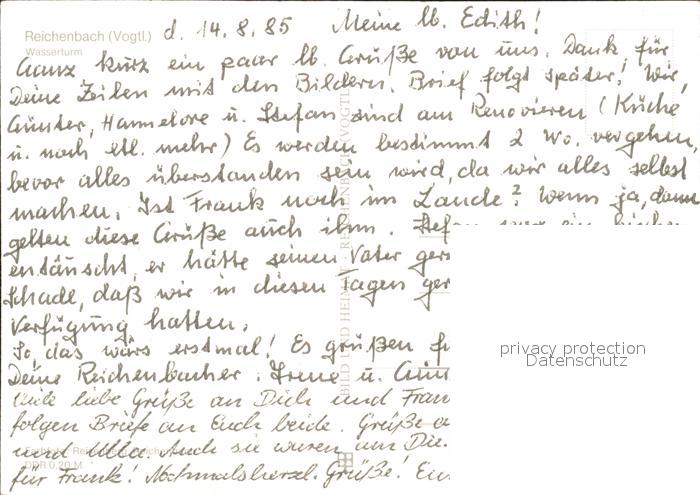 Reichenbach (Vogtl.)
Wasserturm
d. 14.8.85 Meine lb. Edith!
Ganz kurz ein paar lb. Grüße von uns. Dank für
Deine Zeilen mit den Bildern. Brief folgt später. Wir,
Günter, Hannelore u. Stefan sind am Renovieren (Küche
u. noch etl. mehr) Es werden bestimmt 2 Wo. vergehen,
bevor alles überstanden sein wird, da wir alles selbst
machen. Ist Frank noch im Lande? Wenn ja, dann
gelten diese Grüße auch ihm. Stefan war ein bischen
entäuscht, er hätte seinen Vater ger
Schade, daß wir in diesen Tagen ger
Verfügung hatten.
So, das wärs erstmal! Es grüßen
Deine Reichenbacher. Irene u. Gün
viele liebe Grüße an Dich und Fran
folgen Briefe an Euch beide. Grüße a
und Ulla. Auch sie waren am Die.
für Frank! Nochmals herzl. Grüße!
DDR 0,20 M
BILD UND HEIMAT · REICHENBACH (VOGTL)
privacy protection
Datenschutz